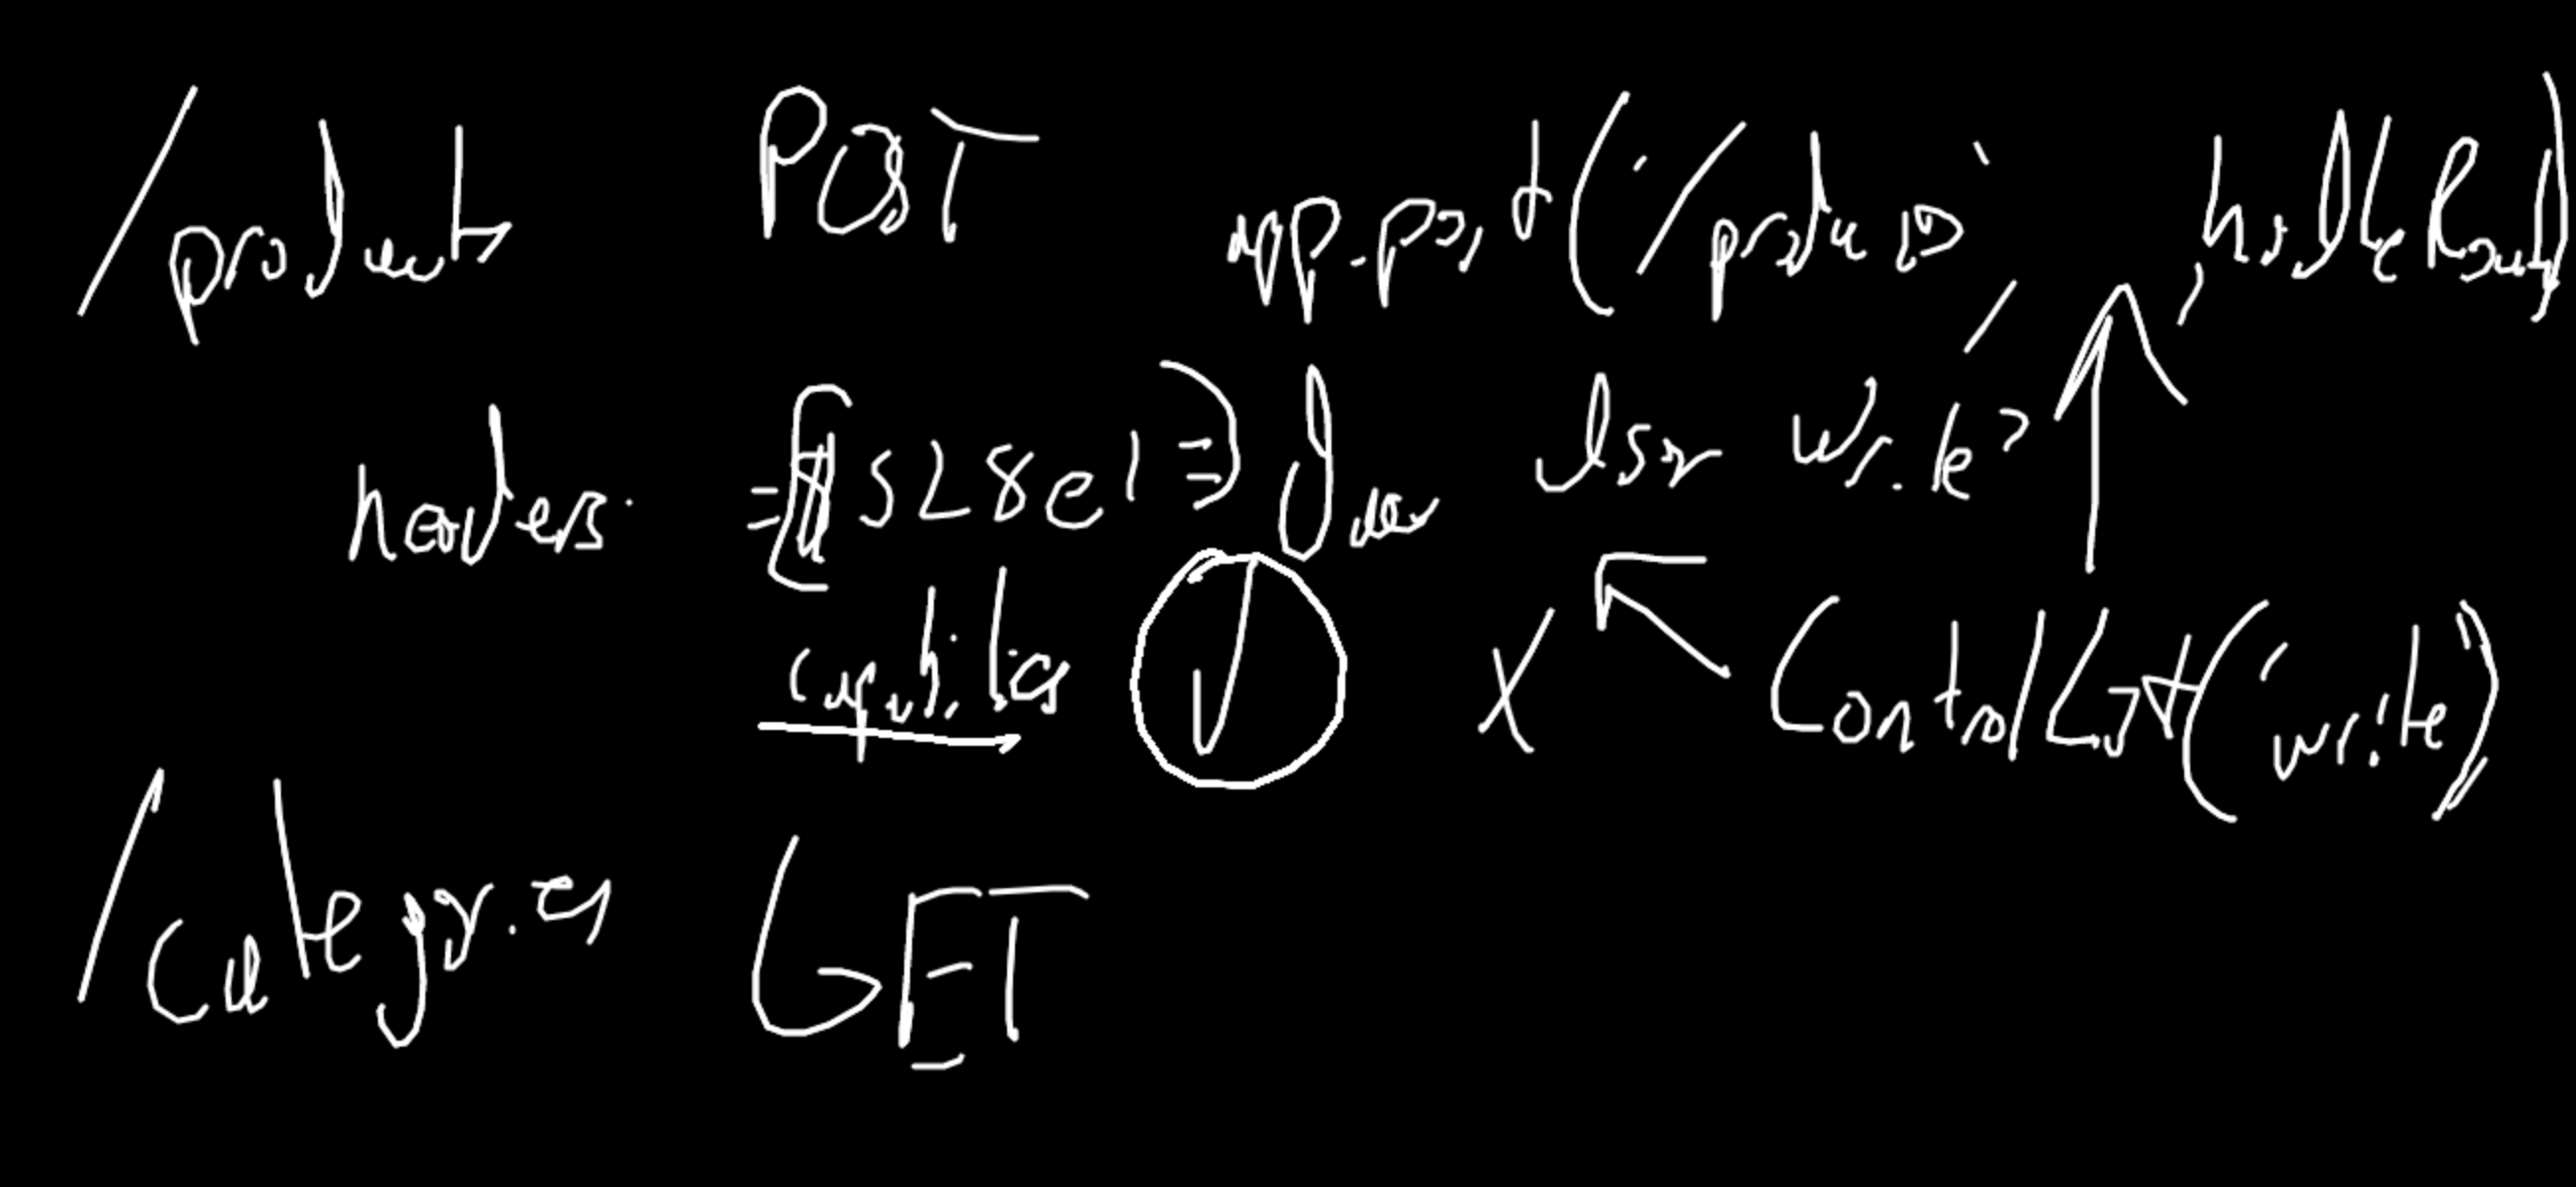 /products POST app.post('/products', handleRoute)
headers. 528e1 write?
capabilities X ControlList('write')
/categories GET